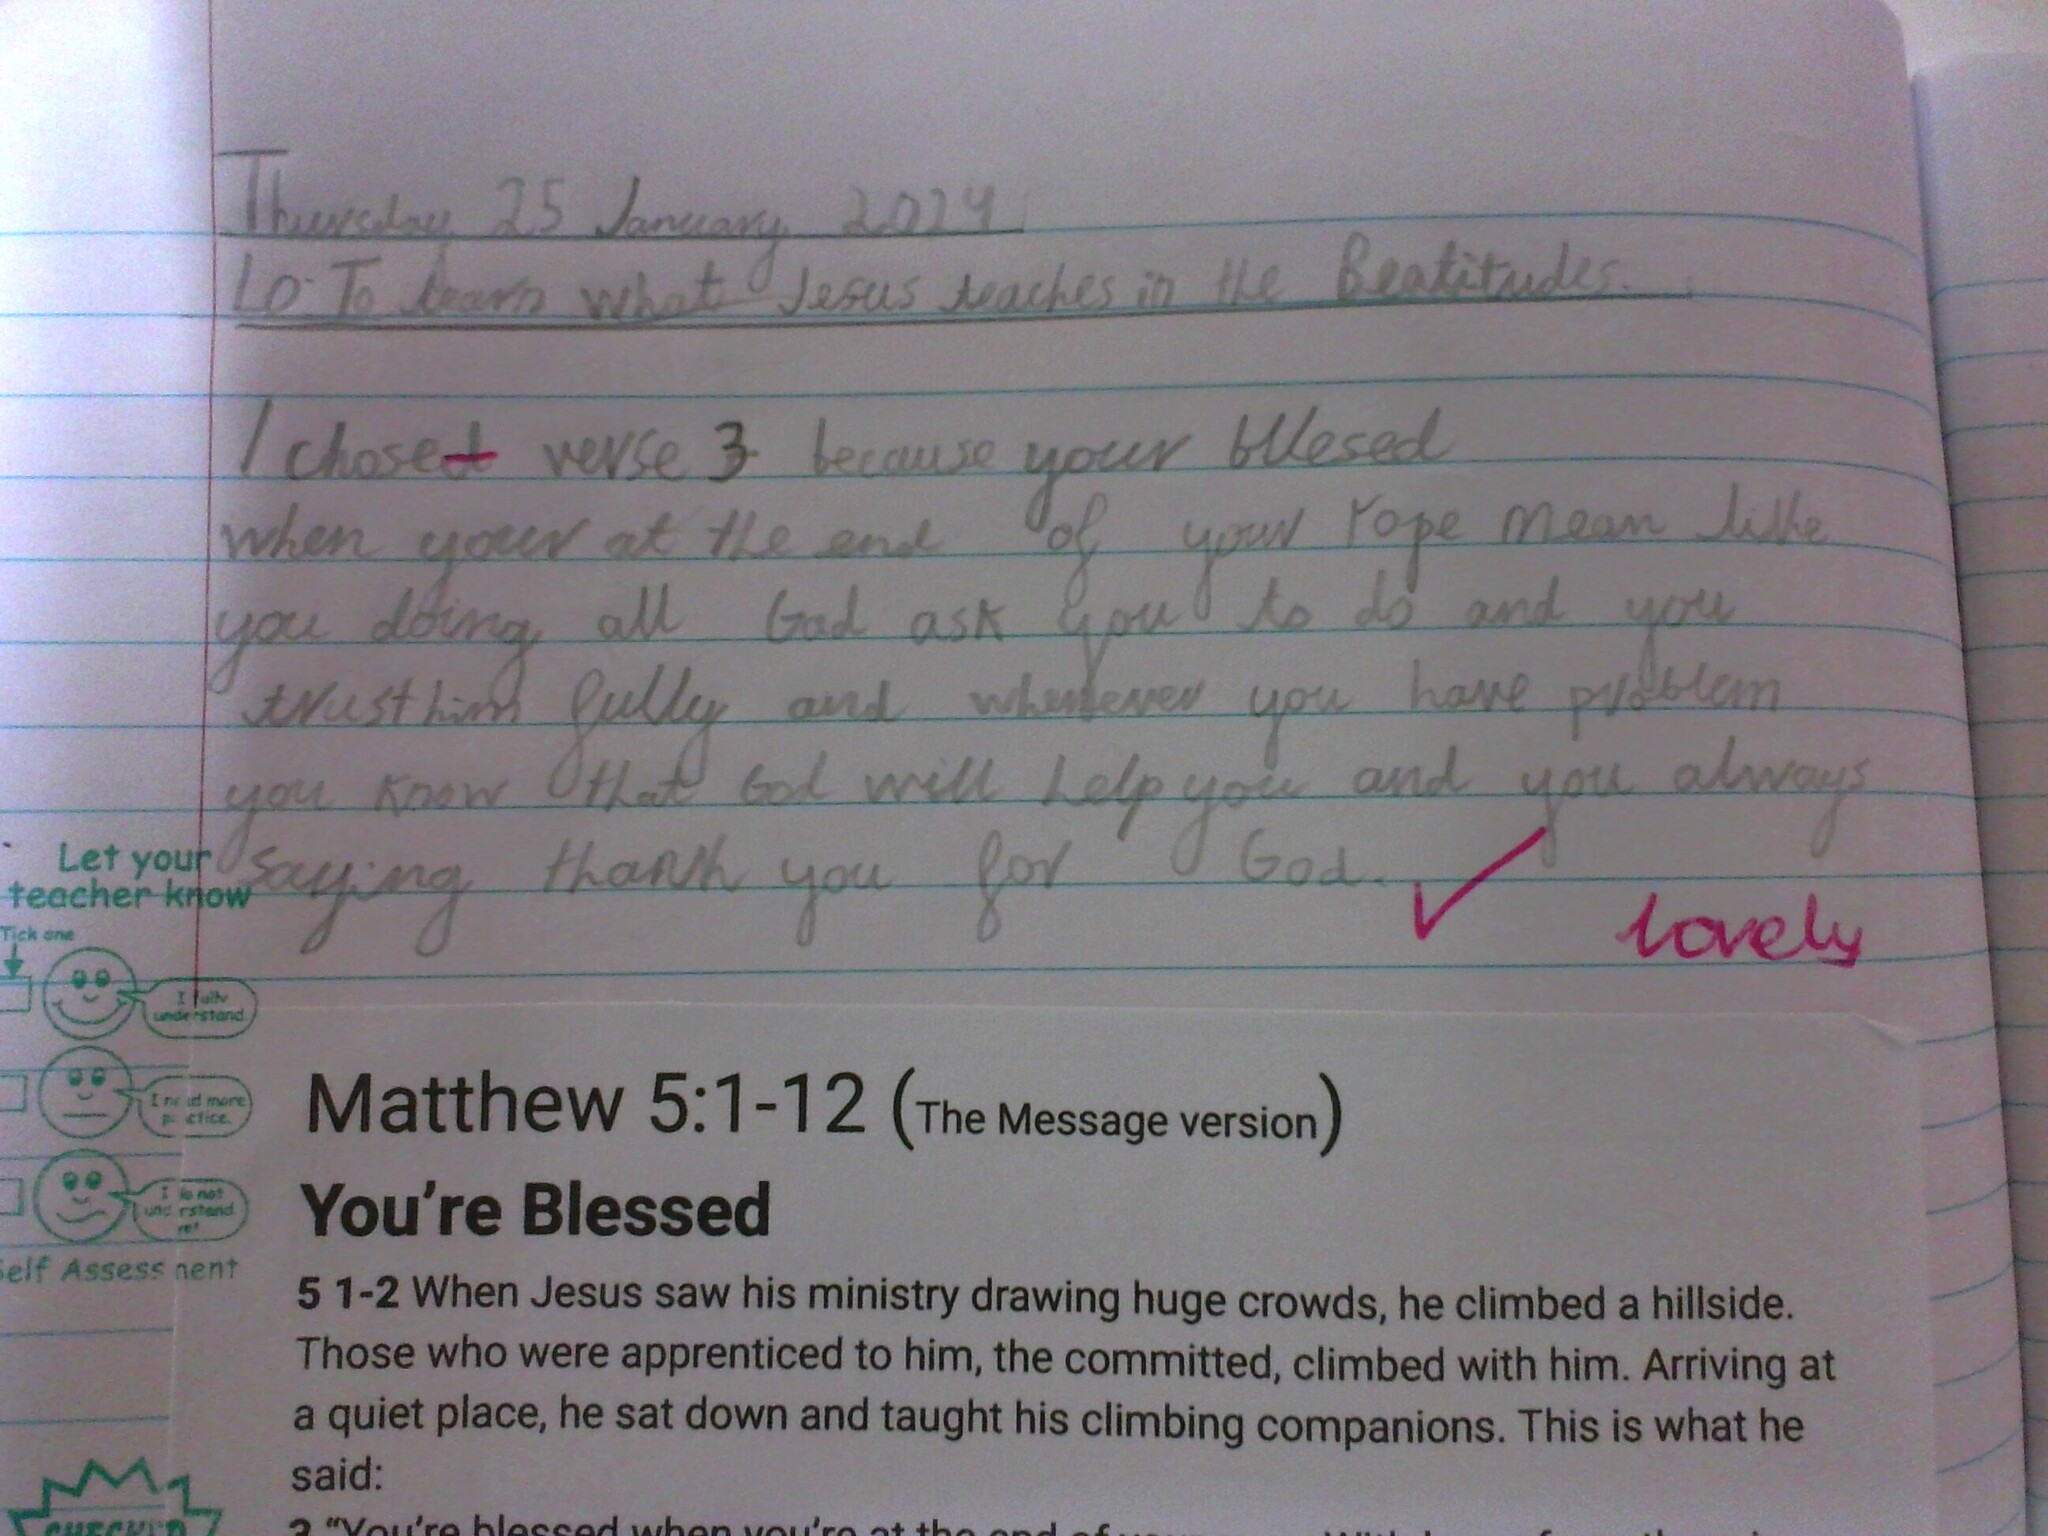 Thursday 25 January 2024
LO: To learn what Jesus teaches in the Beatitudes.
I chosed verse 3 because your bllesed
when your at the end of your rope mean like
you doing all God ask you to do and you
trust him fully and whenever you have problem
you know that God will help you and you always
saying thank you for God.
lovely
Let your
teacher know
Tick one
I fully
understand
I need more
practice.
I do not
understand
yet
Self Assessment
CHECKED
Matthew 5:1-12 (The Message version)
You're Blessed
5 1-2 When Jesus saw his ministry drawing huge crowds, he climbed a hillside.
Those who were apprenticed to him, the committed, climbed with him. Arriving at
a quiet place, he sat down and taught his climbing companions. This is what he
said:
3 "You're blessed when you're at the end of your